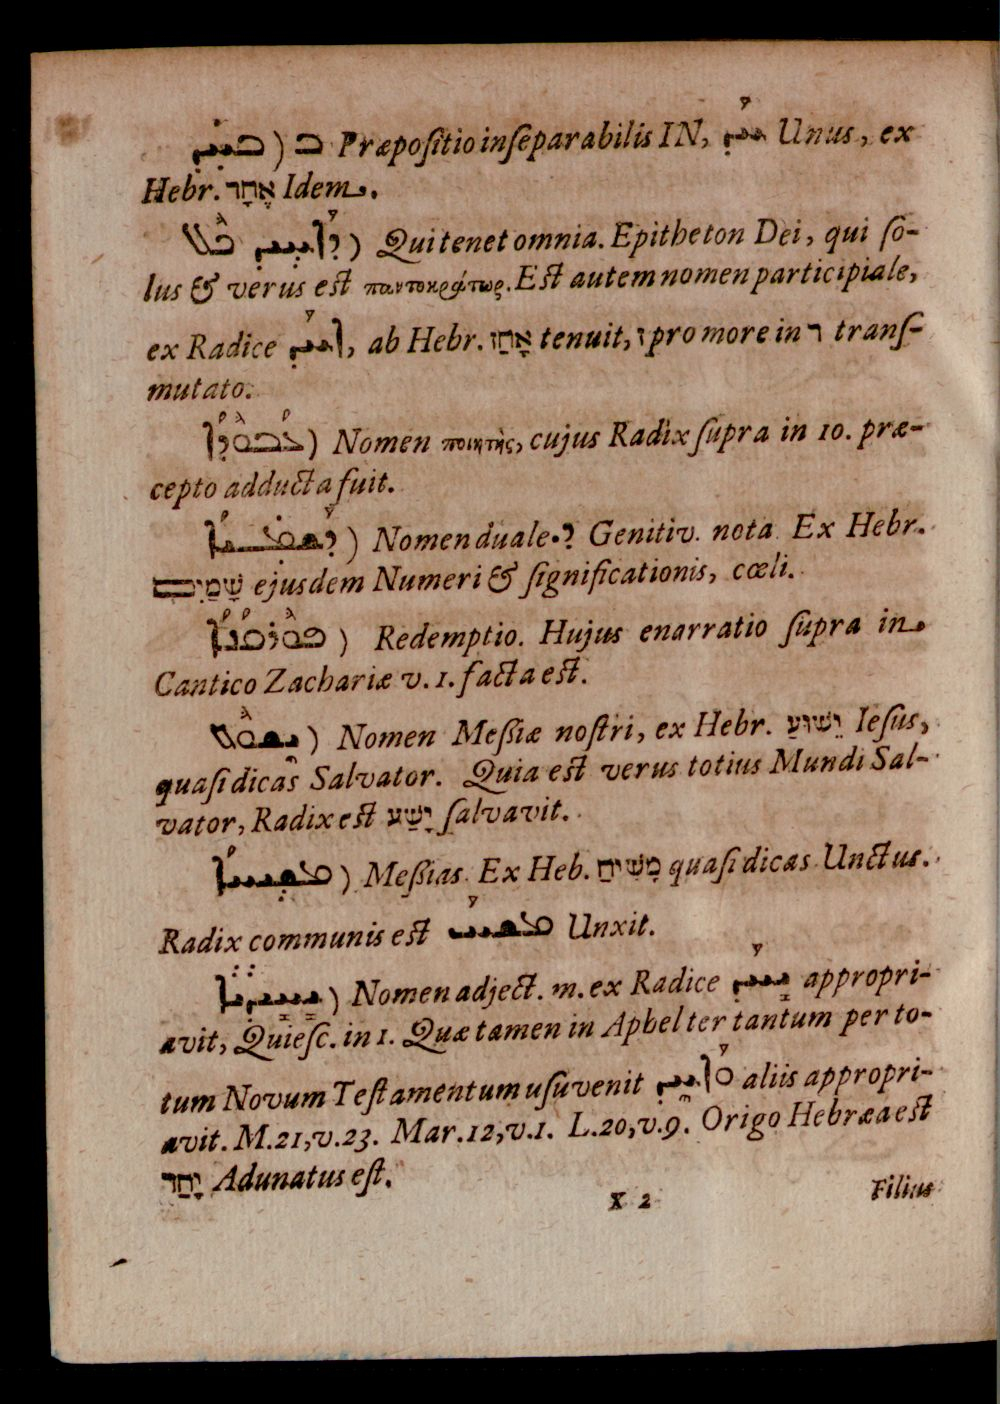 ܒܚܕ ) ܒ Præpoſitio inſeparabilis IN, ܚܕ Unus, ex
Hebr. אֶחָד Idem.
ܕܐܚܝܕ ܟܠ ) Qui tenet omnia. Epitheton Dei, qui ſo-
lus & verus eſt παντοκράτωρ. Eſt autem nomen participiale,
ex Radice ܐܚܕ, ab Hebr. אָחַז tenuit, ז pro more in ד transſ-
mutato.
ܥܒܘܕܐ ) Nomen ποιητὴς, cujus Radix ſupra in 10. præ-
cepto adducta fuit.
ܕܫܡܝܐ ) Nomen duale. ܕ Genitiv. nota Ex Hebr.
שָׁמַיִם ejusdem Numeri & ſignificationis, cœli.
ܦܘܪܩܢܐ ) Redemptio. Hujus enarratio ſupra in
Cantico Zachariæ v. 1. facta eſt.
ܝܫܘܥ ) Nomen Meſſiæ noſtri, ex Hebr. יֵשׁוּעַ Ieſus,
quaſi dicas Salvator. Quia eſt verus totius Mundi Sal-
vator, Radix eſt יָשַׁע ſalvavit.
ܡܫܝܚܐ ) Meſſias. Ex Heb. מָשִׁיחַ quaſi dicas Unctus.
Radix communis eſt ܡܫܚ Unxit.
ܝܚܝܕܝܐ ) Nomen adject. m. ex Radice ܝܚܕ appropri-
avit, Quieſc. in 1. Quæ tamen in Aphel ter tantum per to-
tum Novum Teſtamentum uſu venit ܐܘܚܕ aliis appropri-
avit. M. 21, v. 23. Mar. 12, v. 1. L. 20, v. 9. Origo Hebræa eſt
יָחַד Adunatus eſt.
X 2 Filius